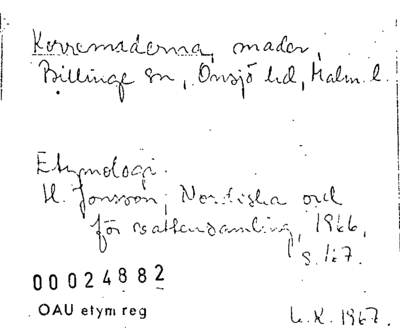 Korremaderna, mader,
Billinge sn, Onsjö hd, Malm. l.
Etymologi.
H. Jonsson, Nordiska ord
för vattensamling, 1966,
s. 127.
00024882
OAU etym reg
L.K. 1967.